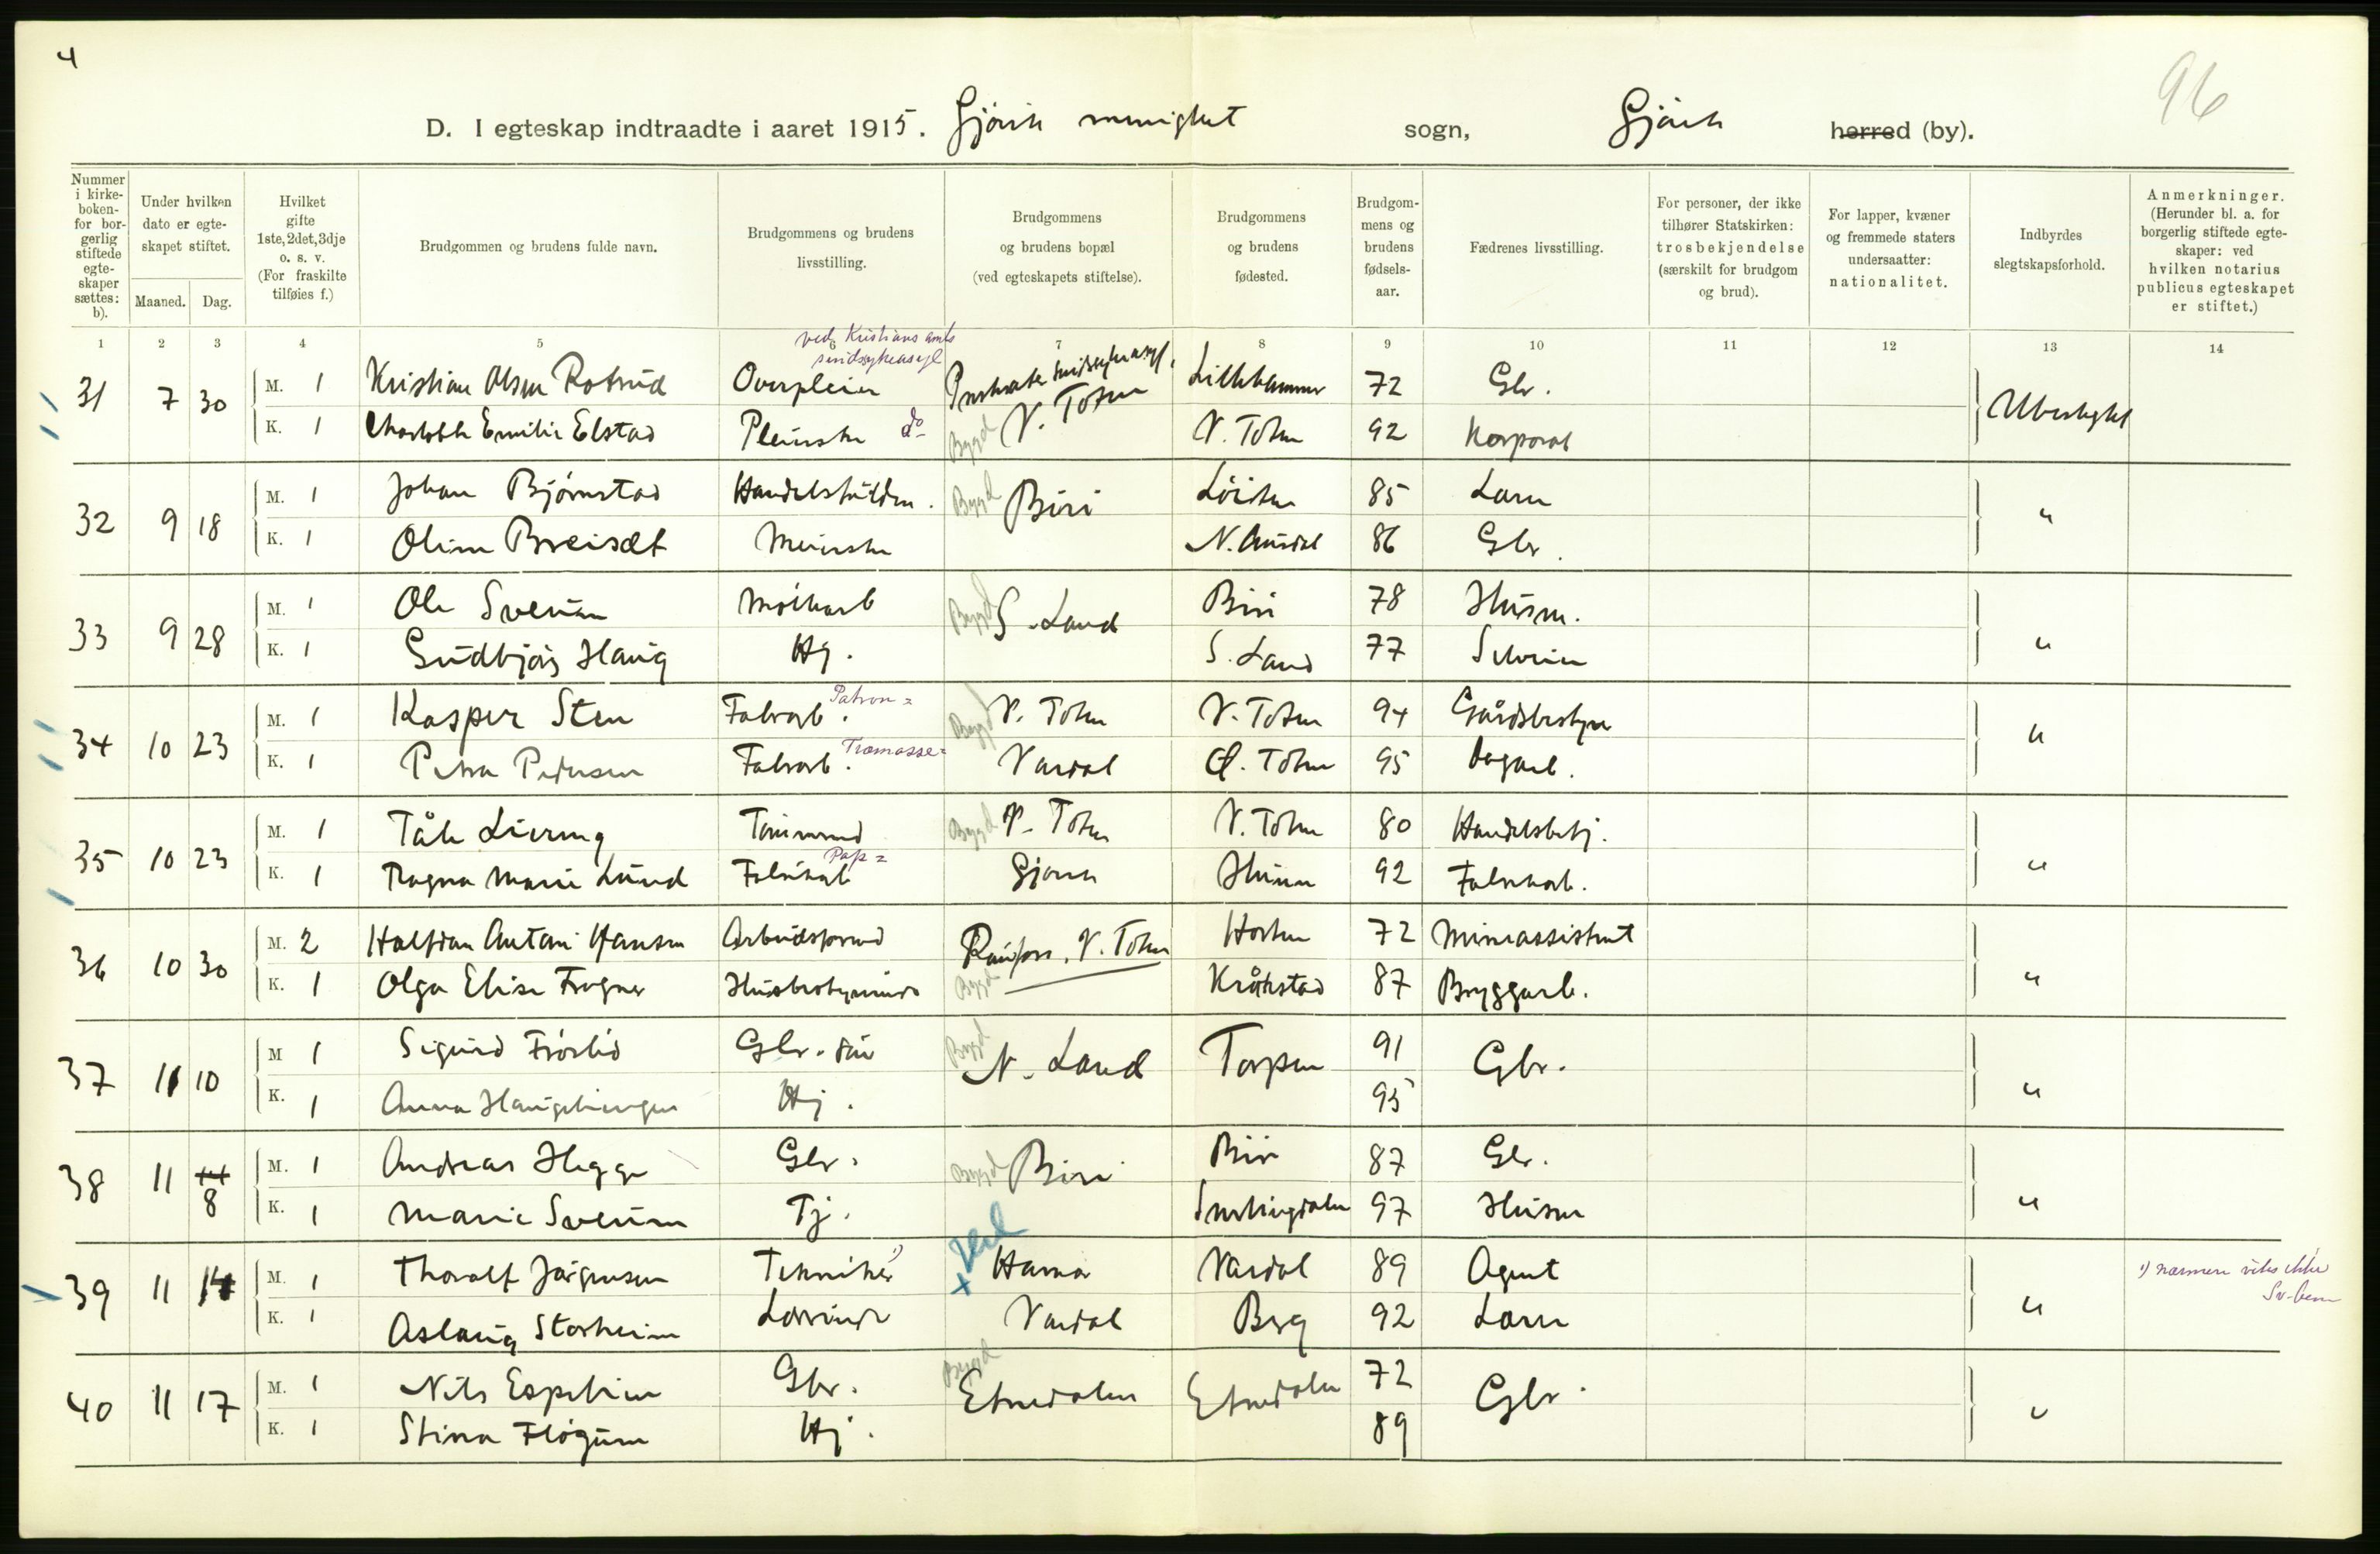 4
96
D. I egteskap indtraadte i aaret 1915. Gjøvik menighet sogn, Gjøvik herred (by).
Nummer i kirke-boken- for bor-gerlig stiftede egte-skaper sættes: b).
Under hvilken dato er egte-skapet stiftet.
Maaned. Dag.
Hvilket gifte 1ste, 2det, 3dje o. s. v. (For fraskilte tilføies f.)
Brudgommen og brudens fulde navn.
Brudgommens og brudens livsstilling.
Brudgommens og brudens bopæl (ved egteskapets stiftelse).
Brudgommens og brudens fødested.
Brudgom-mens og brudens fødsels-aar.
Fædrenes livsstilling.
For personer, der ikke tilhører Statskirken: trosbekjendelse (særskilt for brudgom og brud).
For lapper, kvæner og fremmede staters undersaatter: nationalitet.
Indbyrdes slegtskapsforhold.
Anmerkninger. (Herunder bl. a. for borgerlig stiftede egte-skaper: ved hvilken notarius publicus egteskapet er stiftet.)
1 2 3 4 5 6 7 8 9 10 11 12 13 14
ved Kristians amts sindsykeasyl
31 7 30 M. 1 Kristian Olsen Rotrud Overpleier sindsykeasyl, Lillehammer 72 Gbr. Ubeslegtet
K. 1 Charlotte Emilie Elstad Pleierske do Bygd V. Toten V. Toten 92 Korporal
32 9 18 M. 1 Johan Bjørnstad Handelsfuldm. Bygd Biri Løiten 85 Lærer "
K. 1 Oline Breisæt Meierske N. Aurdal 86 Gbr.
33 9 28 M. 1 Ole Sveum Bygd S. Land Biri 78 Husm. "
K. 1 Gudbjør Haug Hj. S. Land 77 Selveier
34 10 23 M. 1 Kasper Sten Fabrarb. Patron= Bygd V. Toten V. Toten 94 Gårdsbestyrer "
K. 1 Petra Pedersen Fabrarb. Træmasse= Vardal Ø. Toten 95 Dagarb.
35 10 23 M. 1 Tåle Liereng Tømmermd Bygd V. Toten V. Toten 80 Handelsbetj. "
K. 1 Ragna Marie Lund Fabrikarb Pap= Gjøvik Hunn 92 Fabrikarb.
36 10 30 M. 2 Halfdan Antani Hansen Arbeidsformd Raufoss, V. Toten Horten 72 Mineassistent "
K. 1 Olga Elise Fragner Husbestyrerinde Bygd Kråkstad 87 Bryggarb.
37 11 10 M 1 Sigurd Frøslid Gbr. søn Bygd N. Land Torpen 91 Gbr. "
K. 1 Anna Haugsbingen Hj. 95
38 11 8 M. 1 Andreas Hegge Gbr. Bygd Biri Biri 87 Gbr. "
K. 1 Marie Sveum Tj. Snertingdalen 97 Husm
39 11 14 M. 1 Thoralf Jørgensen Tekniker 1) x Hed Hamar Vardal 89 Agent " 1) nærmere vites ikke
K. 1 Aslaug Storheim Lærerinde Vardal Berg 92 Lærer
40 11 17 M. 1 Nils Espelien Gbr. Bygd Etnedalen Etnedalen 72 Gbr. "
K. 1 Stina Fløgum Hj. 89